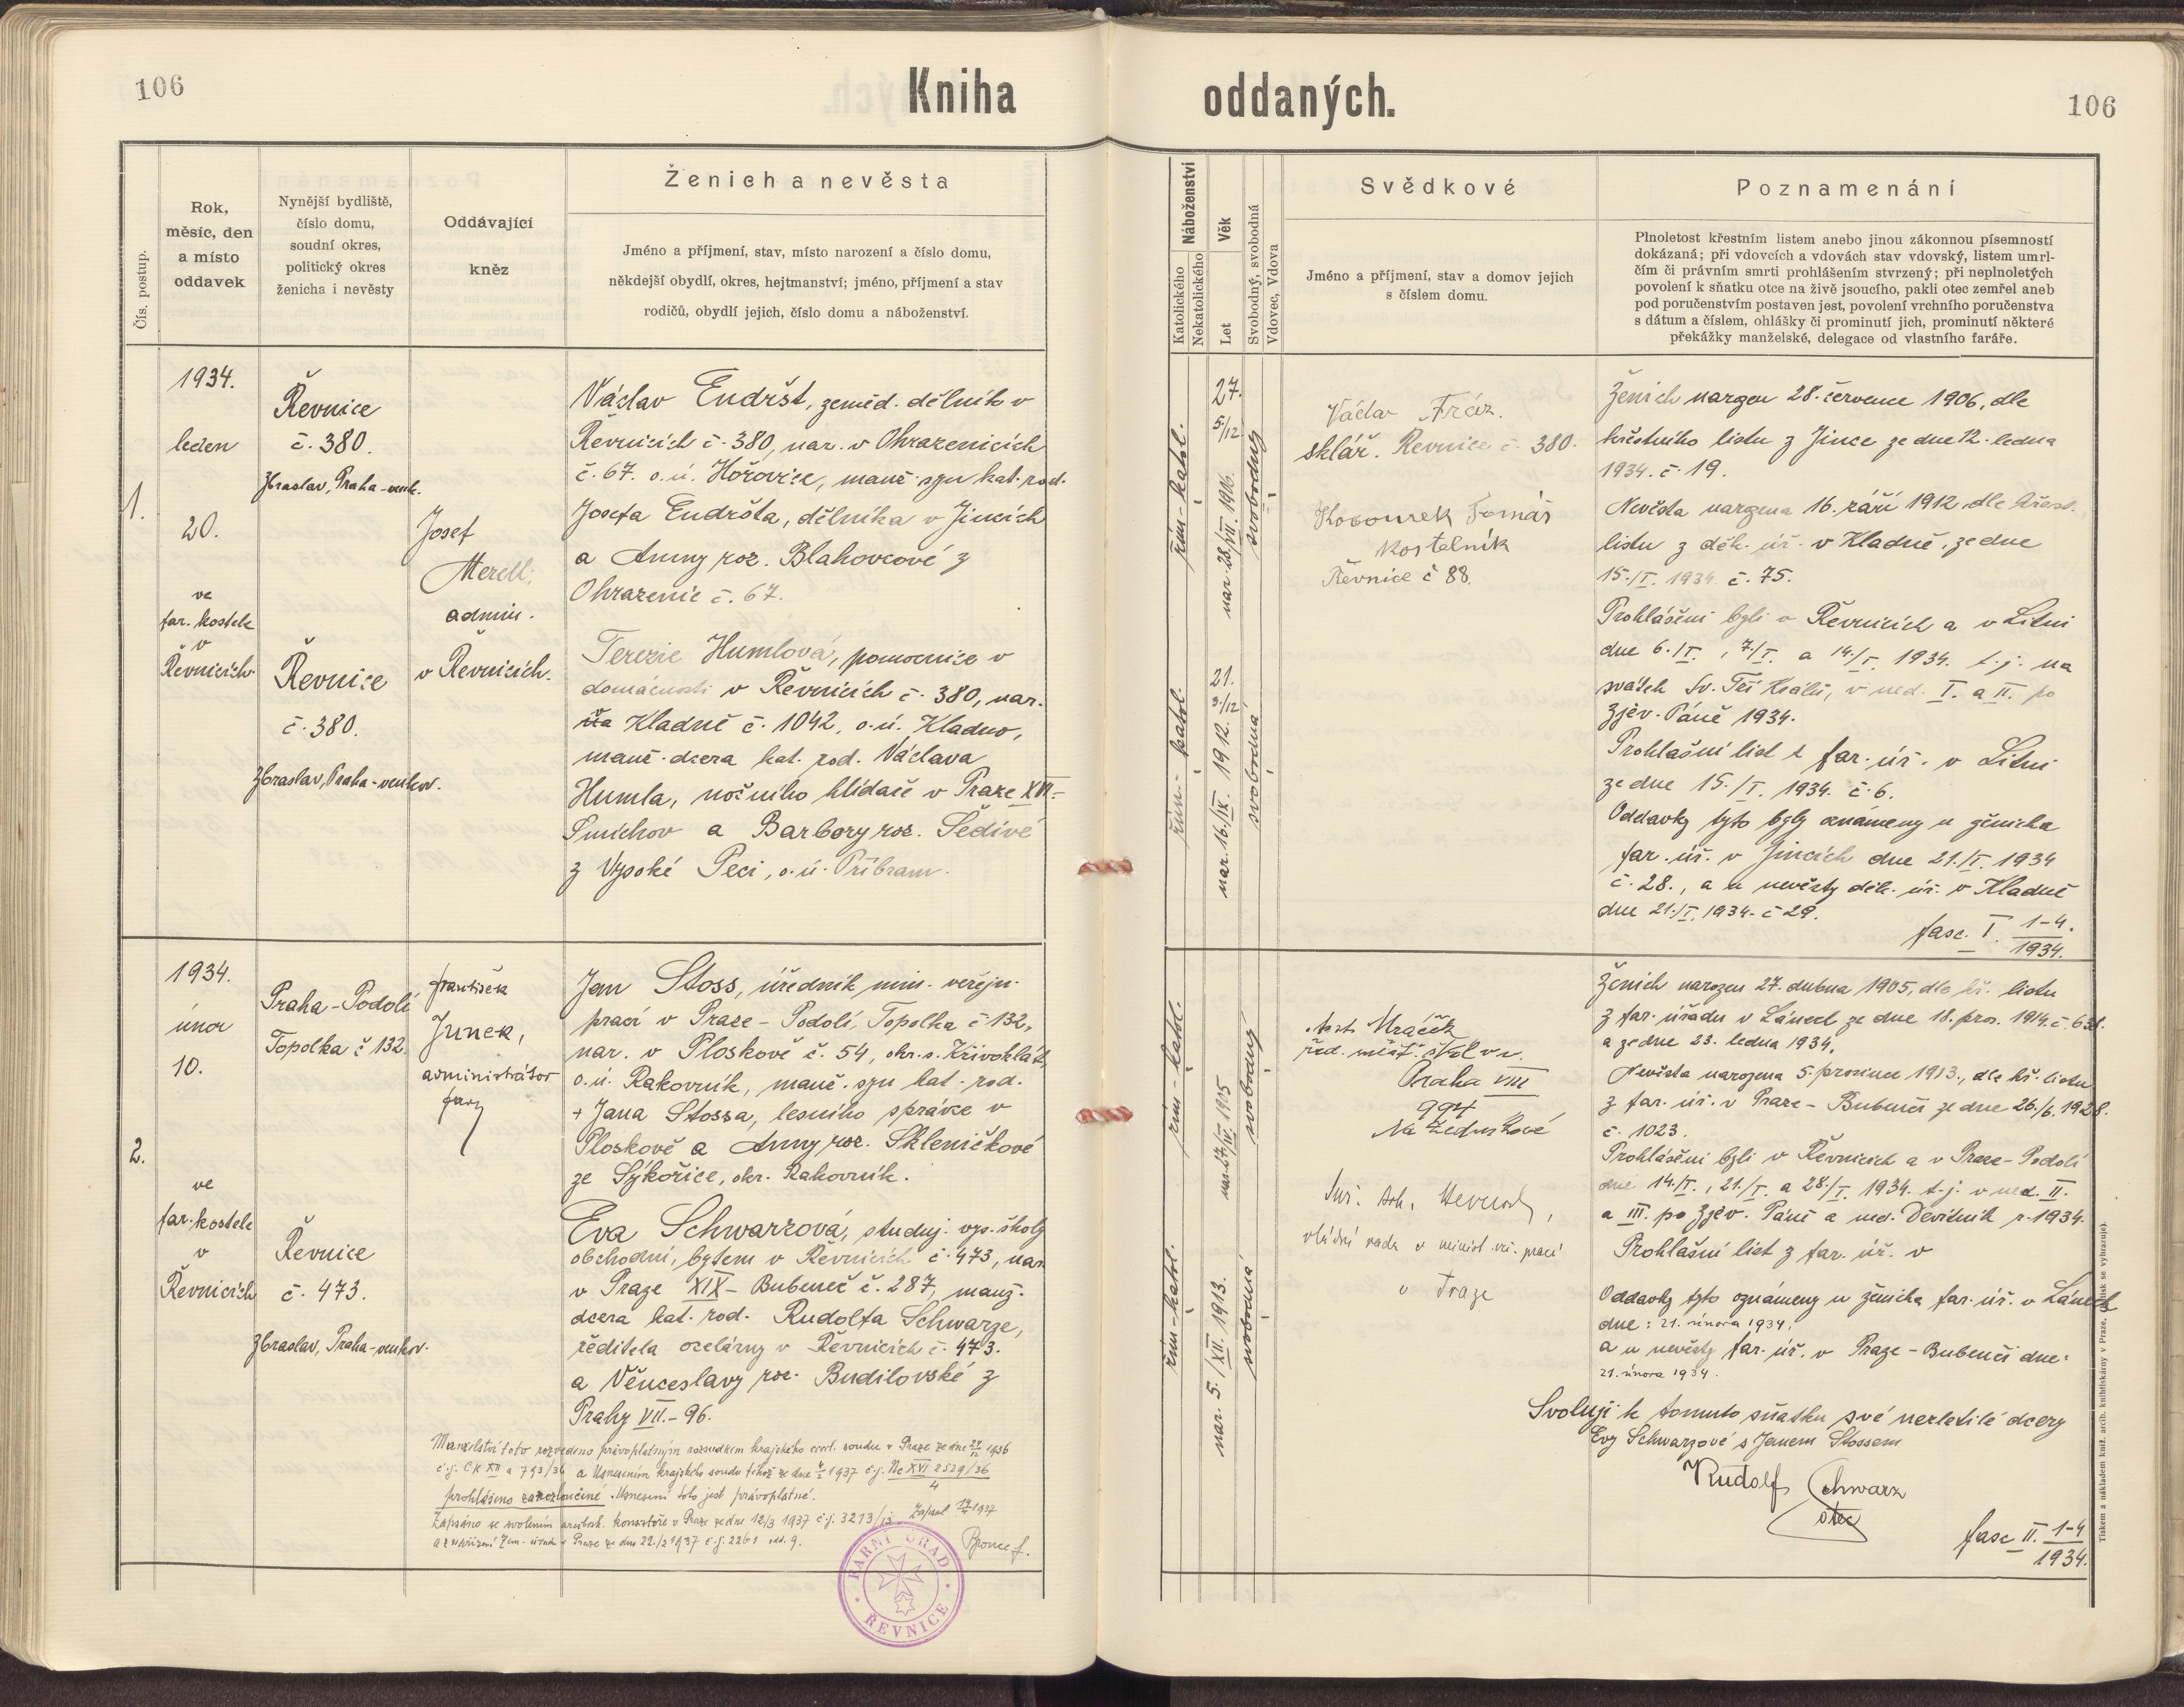 106
Kniha
oddaných.
106
Čís. postup.
Rok,
měsíc, den
a místo
oddavek
Nynější bydliště,
číslo domu,
soudní okres,
politický okres
ženicha i nevěsty
Oddávající
kněz
Ženich a nevěsta
Jméno a příjmení, stav, místo narození a číslo domu,
někdejší obydlí, okres, hejtmanství; jméno, příjmení a stav
rodičů, obydlí jejich, číslo domu a náboženství.
Náboženství
Katolického
Nekatolického
Věk
Let
Svobodný, svobodná
Vdovec, Vdova
Svědkové
Jméno a příjmení, stav a domov jejich
s číslem domu.
Poznamenání
Plnoletost křestním listem anebo jinou zákonnou písemností
dokázaná; při vdovcích a vdovách stav vdovský, listem umrl-
čím či právním smrti prohlášením stvrzený; při neplnoletých
povolení k sňatku otce na živě jsoucího, pakli otec zemřel aneb
pod poručenstvím postaven jest, povolení vrchního poručenstva
s dátum a číslem, ohlášky či prominutí jich, prominutí některé
překážky manželské, delegace od vlastního faráře.
1.
1934.
leden
20.
ve
far. kostele
v
Řevnicích
Řevnice
č. 380.
Zbraslav, Praha-venk.
Řevnice
č. 380.
Zbraslav, Praha-venkov.
Josef
Merell,
admin.
v Řevnicích.
Václav Endršt, zeměd. dělník v
Řevnicích č. 380, nar. v Ohrazenicích
č. 67. o.ú. Hořovice, manž. syn kat. rod.
Josefa Endršta, dělníka v Jincích
a Anny roz. Blahovcové z
Ohrazenic č. 67.
Terezie Humlová, pomocnice v
domácnosti v Řevnicích č. 380, nar.
na Kladně č. 1042, o.ú. Kladno,
manž. dcera kat. rod. Václava
Humla, nočního hlídače v Praze XVI-
Smíchov a Barbory roz. Šedivé
z Vysoké Peci, o.ú. Příbram.
řím-katol.
27.
5/12
nar. 28./VII. 1906.
svobodný
řím.-katol.
21.
3/12
nar. 16./IX. 1912.
svobodná
Václav Fráz.
sklář. Řevnice č. 380.
Kocourek Tomáš
kostelník
Řevnice č 88.
Ženich narozen 28. července 1906, dle
křestního listu z Jince ze dne 12. ledna
1934. č. 19.
Nevěsta narozena 16. září 1912 dle křest.
listu z děk. úř. v Kladně, ze dne
15./I. 1934. č. 75.
Prohlášeni byli v Řevnicích a v Litni
dne 6./I., 7./I. a 14./I. 1934. t.j. na
svátek Sv. Tří Králů, v ned. I. a II. po
Zjev. Páně 1934.
Prohlašní list z far. úř. v Litni
ze dne 15./I. 1934. č. 6.
Oddavky tyto byly oznámeny u ženicha
far. úř. v Jincích dne 21./I. 1934
č. 28., a u nevěsty děk. úř. v Kladně
dne 21./I. 1934. č 29.
fasc. I. 1-4.
1934.
2.
1934.
únor
10.
ve
far. kostele
v
Řevnicích
Praha-Podolí
Topolka č 132.
Řevnice
č. 473.
Zbraslav, Praha-venkov.
František
Junek,
administrátor
fary
Jan Stoss, úředník min. veřejn.
prací v Praze-Podolí, Topolka č 132,
nar. v Ploskově č. 54, okr. s. Křivoklát,
o.ú. Rakovník, manž. syn kat. rod.
+ Jana Stossa, lesního správce v
Ploskově a Anny roz. Skleničkové
ze Sýkořice, okr. Rakovník.
Eva Schwarzová, studuj. vys. školy
obchodní, bytem v Řevnicích č. 473, nar.
v Praze XIX-Bubeneč č. 287, manž.
dcera kat. rod. Rudolfa Schwarze,
ředitele ocelárny v Řevnicích č. 473.
a Věnceslavy roz. Budilovské z
Prahy VII.-96.
řím-katol.
nar. 27/IV. 1905
svobodný
řím-katol.
nar. 5./XII. 1913.
svobodná
řed. měšť. škol v.v.
Praha VIII
994
vládní rada v minist. veř. prací
v Praze
Ženich narozen 27. dubna 1905, dle kř. listu
z far. úřadu v Lánech ze dne 18. pros. 1914. č. 631.
a ze dne 23. ledna 1934.
Nevěsta narozena 5. prosince 1913., dle kř. listu
z far. úř. v Praze-Bubenči ze dne 26./6. 1928.
č. 1023.
Prohlášeni byli v Řevnicích a v Praze-Podolí
dne 14./I., 21./I. a 28./I. 1934. t.j. v ned. II.
a III. po Zjev. Páně a ned. Devítník r. 1934.
Prohlašní list z far. úř. v
Oddavky tyto oznámeny u ženicha far. úř. v Lánech
dne: 21. února 1934.
a u nevěsty far. úř. v Praze-Bubenči dne:
21. února 1934.
Svoluji k tomuto sňatku své nezletilé dcery
Evy Schwarzové s Janem Stossem
Rudolf Schwarz
otec
fasc II. 1-4
1934.
Manželství toto rozvedeno právoplatným rozsudkem krajského civil. soudu v Praze ze dne 1936
č.j. Ck XII a 793/36 a Usnesením krajského soudu téhož ze dne 1937 č.j. Nc XVI 2529/36
4
prohlášeno za rozloučené. Usnesení toto jest právoplatné.
Zapsáno se svolením arcibisk. konsistoře v Praze ze dne 12/3 1937 č.j. 3273/ Zapsal 1937
a z nařízení Zem. úřadu v Praze ze dne 22./2 1937 č.j. 2261 odd. 9.
FARNÍ ÚŘAD
ŘEVNICE
Tiskem a nákladem kníž. arcib. knihtiskárny v Praze. (Patisk se vyhrazuje).